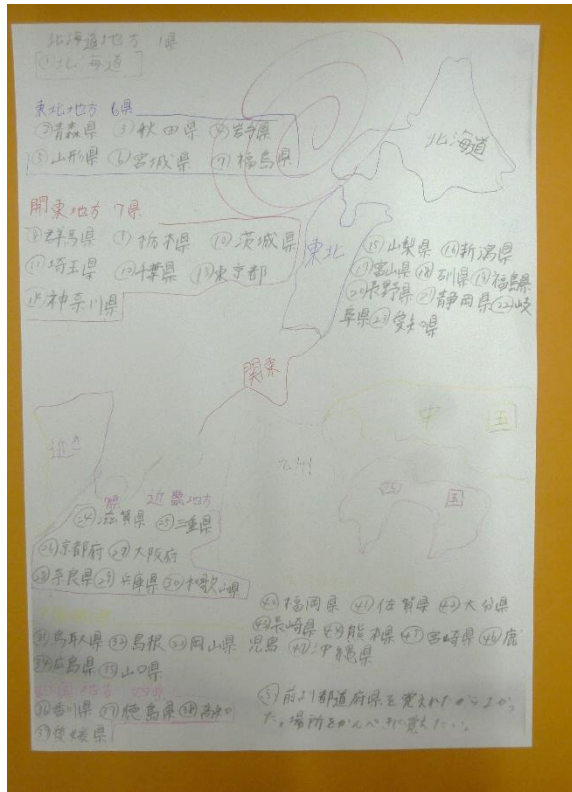 北海道地方 1県
①北海道
東北地方 6県
②青森県 ③秋田県 ④岩手県
⑤山形県 ⑥宮城県 ⑦福島県
関東地方 7県
⑧群馬県 ⑨栃木県 ⑩茨城県
⑪埼玉県 ⑫千葉県 ⑬東京都
⑭神奈川県
北海道
東北
⑮山梨県 ⑯新潟県
⑰富山県 ⑱石川県 ⑲福島県
⑳長野県 ㉑静岡県 ㉒岐
阜県 ㉓愛知県
関東
中国
近
九州
四国
近畿地方
㉔滋賀県 ㉕三重県
㉖京都府 ㉗大阪府
㉘奈良県 ㉙兵庫県 ㉚和歌山県
㉛鳥取県 ㉜島根 ㉝岡山県
㉞広島県 ㉟山口県
四国地方
㊱香川県 ㊲徳島県 ㊳高知
㊴愛媛県
㊵福岡県 ㊶佐賀県 ㊷大分県
㊸長崎県 ㊹熊本県 ㊺宮崎県 ㊻鹿
児島 ㊼沖縄県
前より都道府県を覚えれたからよかっ
た。場所をかんぺきに覚えたい。